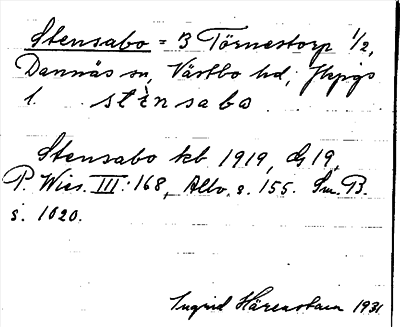 Stensabo = 3 Törnestorp 1/2,
Dannäs sn, Västbo hd, Jkpgs
l. stènsabo
Stensabo kb 1919, G 19,
P. Wies. III: 168, Allv. s. 155. Sm. B.
s. 1020.
Ingrid Härenstam 1931